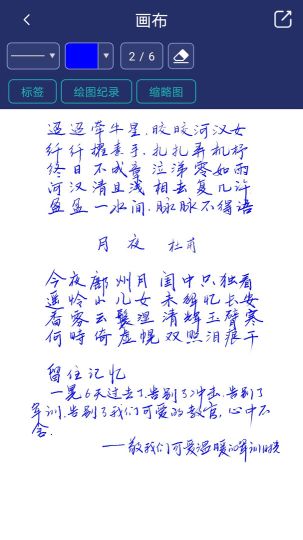 画布
2 / 6
标签
绘图纪录
缩略图
迢迢牵牛星,皎皎河汉女
纤纤擢素手,扎扎弄机杼
终日不成章 泣涕零如雨
河汉清且浅 相去复几许
盈盈一水间,脉脉不得语
月夜 杜甫
今夜鄜州月 闺中只独看
遥怜小儿女 未解忆长安
香雾云鬟湿 清辉玉臂寒
何時倚虚幌 双照泪痕干
留住记忆
一晃6天过去了,告别了冲击,告别了
军训,告别了我们可爱的教官,心中不
舍.
——致我们可爱温暖的军训时光